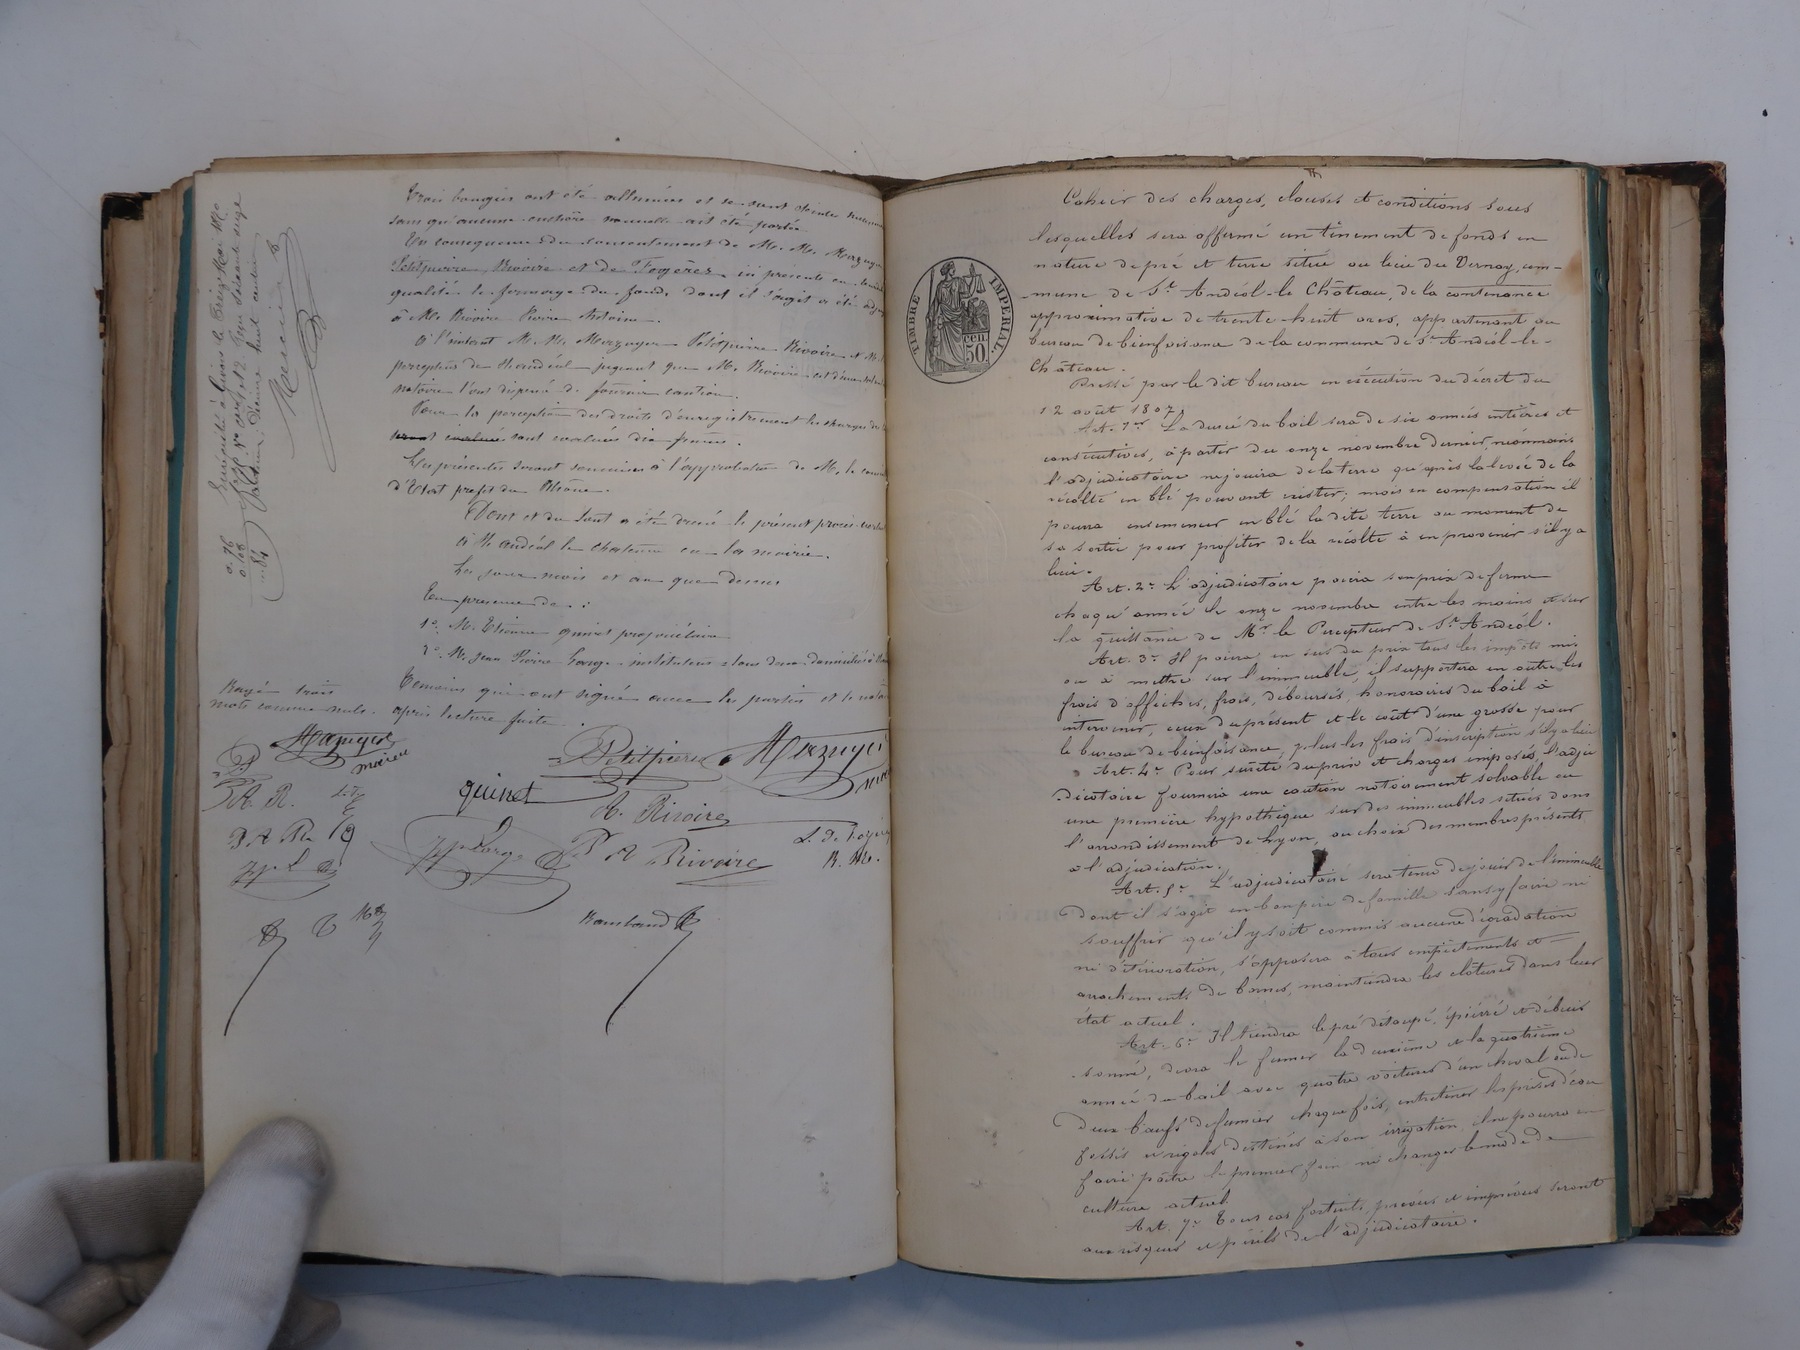 Trois bougies ont été allumées et se sont éteintes
sans qu'aucune enchère nouvelle ait été portée.
En conséquence du consentement de M. M. Mazuyer
Petitpierre, Rivoire et de Fogères, ici présents en leur dite
qualité le fermage du fonds dont il s'agit a été
à M. Rivoire Pierre Antoine.
A l'instant M. M. Mazuyer Petitpierre Rivoire et M. le
percepteur de St andéol jugeant que M. Rivoire est d'une
notoire l'ont dispensé de fournir caution.
Pour la perception des droits d'enregistrement les charges
sont évaluées dix francs.
Les présentes seront soumises à l'approbation de M. le
d'Etat préfet du Rhône.
Dont et du tout a été dressé le présent procès-verbal
à St andéol le chateau en la mairie.
Les jour mois et an que dessus
En présence de :
1º. M. Etienne quinet propriétaire
2º. M. Jean Pierre Large instituteur tous deux domiciliés à
Témoins qui ont signé avec les parties et le notaire
après lecture faite.
Rayé trois
mots comme nuls.
Enregistré à Givors le treize Mai 1870
Mercier
Mazuyer
maire
Petitpierre
Mazuyer
quinet
A. Rivoire
P. A. R.
J P Large
P A Rivoire
L. de Fogères
Rambaud
TIMBRE IMPERIAL
50 cen.
Cahier des charges, clauses et conditions sous
lesquelles sera affermé un tènement de fonds en
nature de pré et terre situé au lieu du Vernay, com-
-mune de St Andéol-le-Château, de la contenance
approximative de trente huit ares, appartenant au
bureau de bienfaisance de la commune de St Andéol-le-
Château.
Dressé par le dit bureau en exécution du décret du
12 août 1807.
Art. 1er La durée du bail sera de six années entières et
consécutives, à partir du onze novembre dernier, néonmoins
l'adjudicataire ne jouira de la terre qu'après la levée de la
récolte en blé pouvant exister; mais en compensation il
pourra ensemencer en blé la dite terre au moment de
sa sortie pour profiter de la récolte à en provenir s'il y a
lieu.
Art. 2e L'adjudicataire paiera son prix de ferme
chaqu'année le onze novembre entre les mains et sur
la quittance de Mr le Percepteur de St Andéol.
Art. 3e Il paiera, en sus du prix tous les impôts mis
ou à mettre sur l'immeuble, il supportera en outre les
frais d'affiches, frais, déboursés, honoraires du bail à
intervenir, ceux du présent et le coût d'une grosse pour
le bureau de bienfaisance, plus les frais d'inscription s'il y a lieu
Art. 4e Pour sureté du prix et charges imposés, l'adju
-dicataire fournira une caution notoirement solvable ou
une première hypothèque sur des immeubles situés dans
l'arrondissement de Lyon, au choix des membres présents
à l'adjudication.
Art. 5e L'adjudicataire sera tenu de jouir de l'immeuble
dont il s'agit en bon père de famille sans y faire ni
souffrir qu'il y soit commis aucune dégradation
ni détérioration, s'opposera à tous empiètements et
arrachements de bornes, maintiendra les clôtures dans leur
état actuel.
Art. 6e Il tiendra le pré détaupé, épierré et débuis
-sonné, devra le fumer la deuxième et la quatrième
année du bail avec quatre voitures d'un cheval ou de
deux bœufs de fumier chaque fois, entretenir les prises d'eau
fossés et rigoles destinés à son irrigation, il ne pourra en
faire paître le premier foin ni changer le mode de
culture actuel.
Art. 7e Tous cas fortuits, prévus et imprévus seront
aux risques et périls de l'adjudicataire.